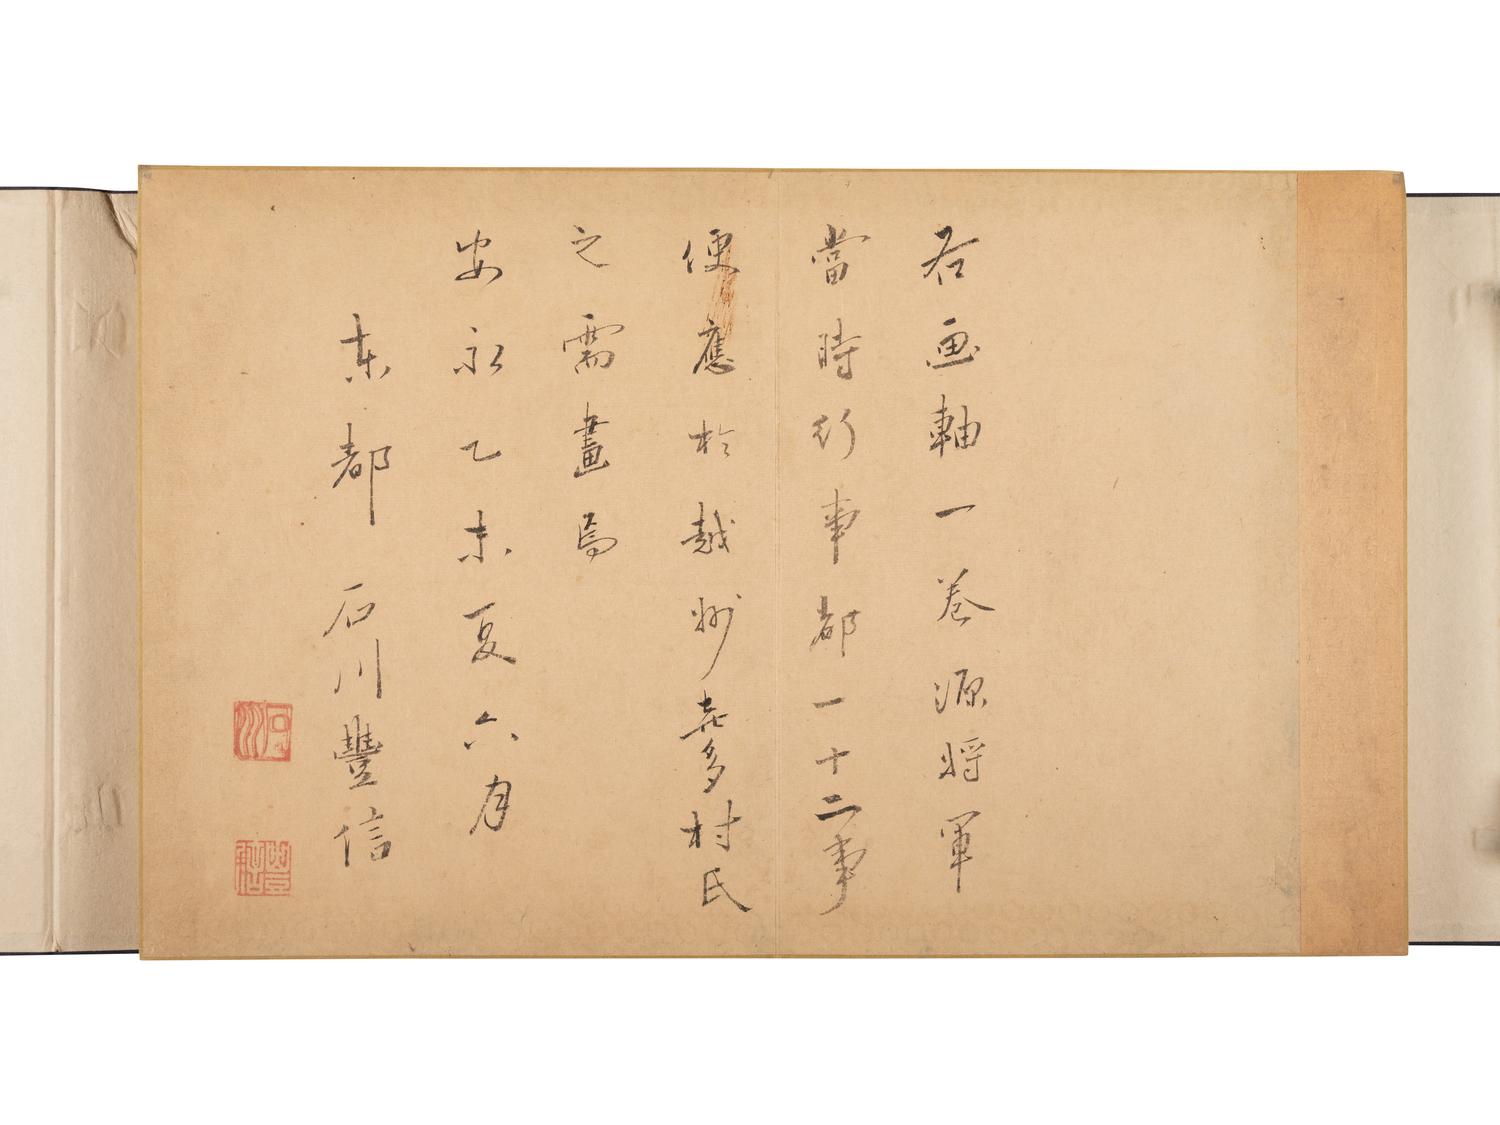 右画軸一巻源将軍
當時行事都一十二事
便應於越州喜多村氏
之需畫焉
安永乙未夏六月
東都石川豐信
石川
豐信